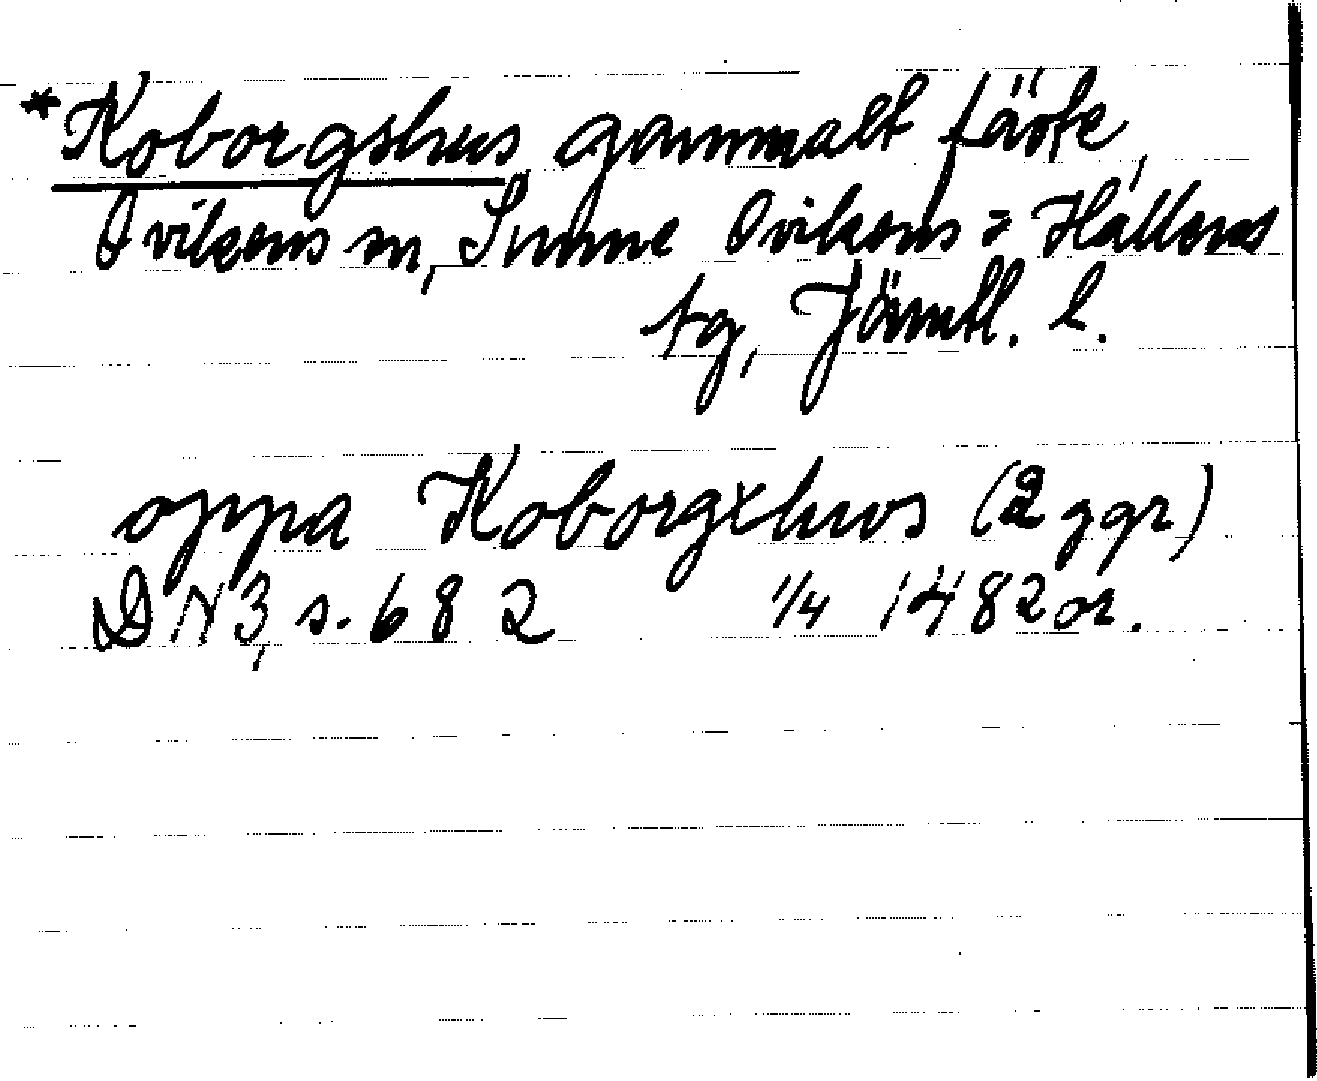 *Koborgshus gammalt fäste,
Ovikens sn, Sunne Ovikens = Hallens
tg, Jämtl. l.
oppa Koborgxhws (2 ggr)
DN 3, s. 682 1/4 1482 or.